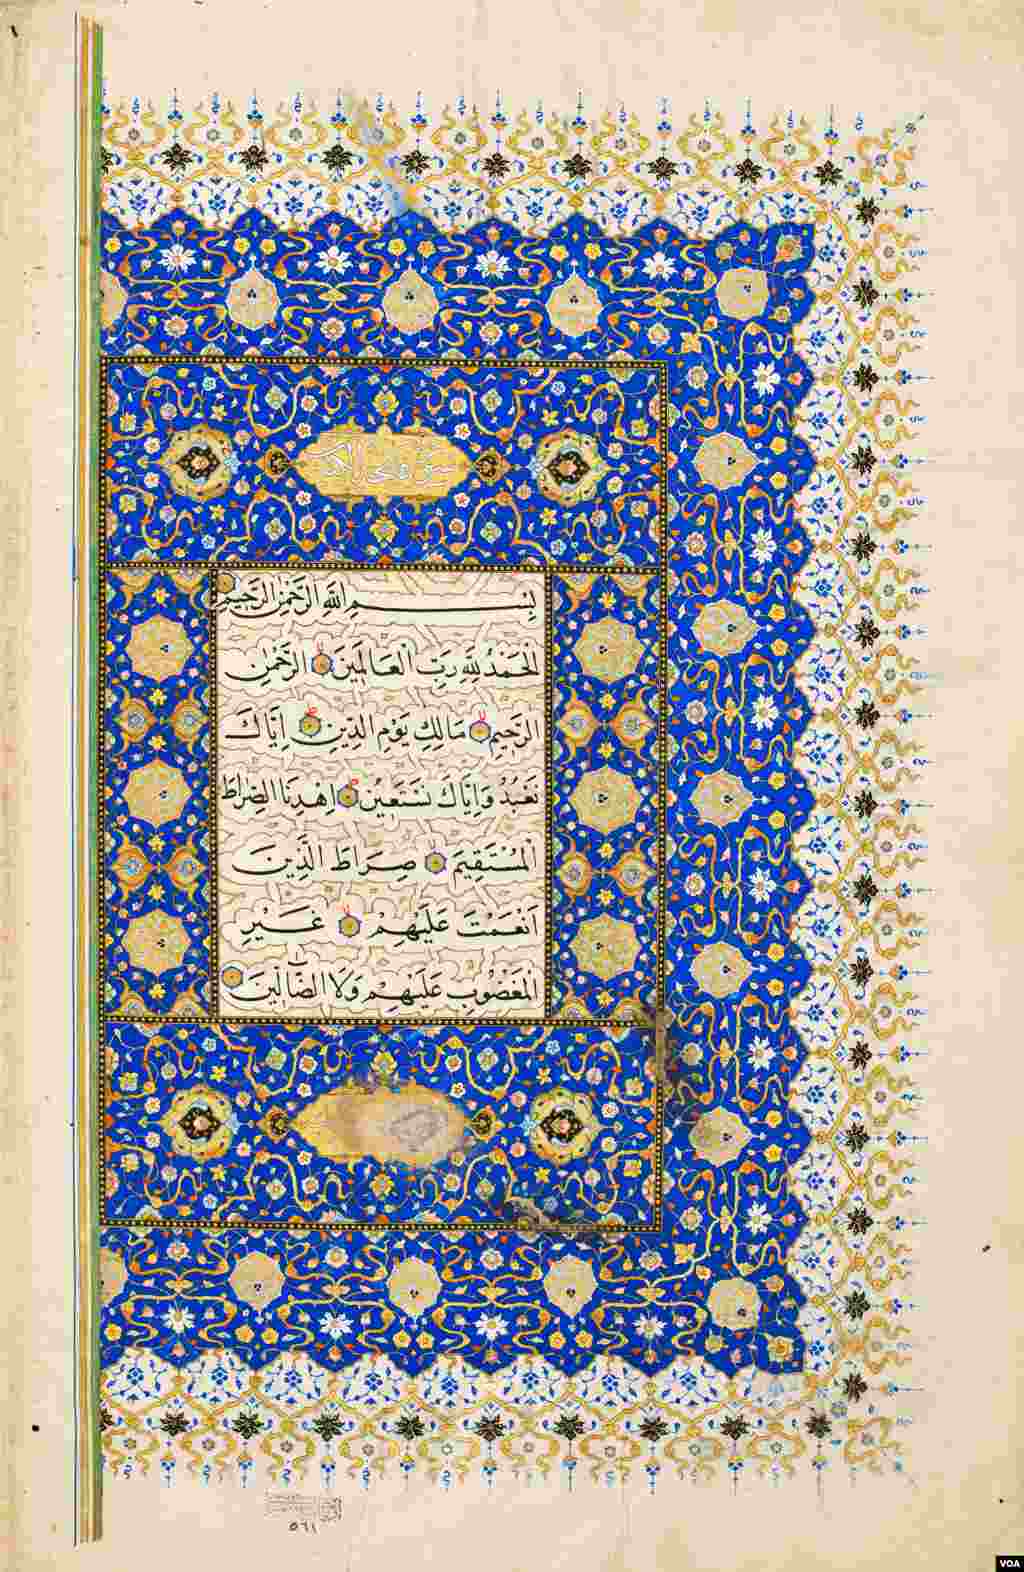 سورة فاتحة الكتاب
بِسْمِ اللهِ الرَّحْمٰنِ الرَّحِيمِ
اَلْحَمْدُ لِلّٰهِ رَبِّ الْعَالَمِينَ الرَّحْمٰنِ
الرَّحِيمِ مَالِكِ يَوْمِ الدِّينِ اِيَّاكَ
نَعْبُدُ وَاِيَّاكَ نَسْتَعِينُ اِهْدِنَا الصِّرَاطَ
الْمُسْتَقِيمَ صِرَاطَ الَّذِينَ
اَنْعَمْتَ عَلَيْهِمْ غَيْرِ
الْمَغْضُوبِ عَلَيْهِمْ وَلَا الضَّالِّينَ
٥٦١
VOA